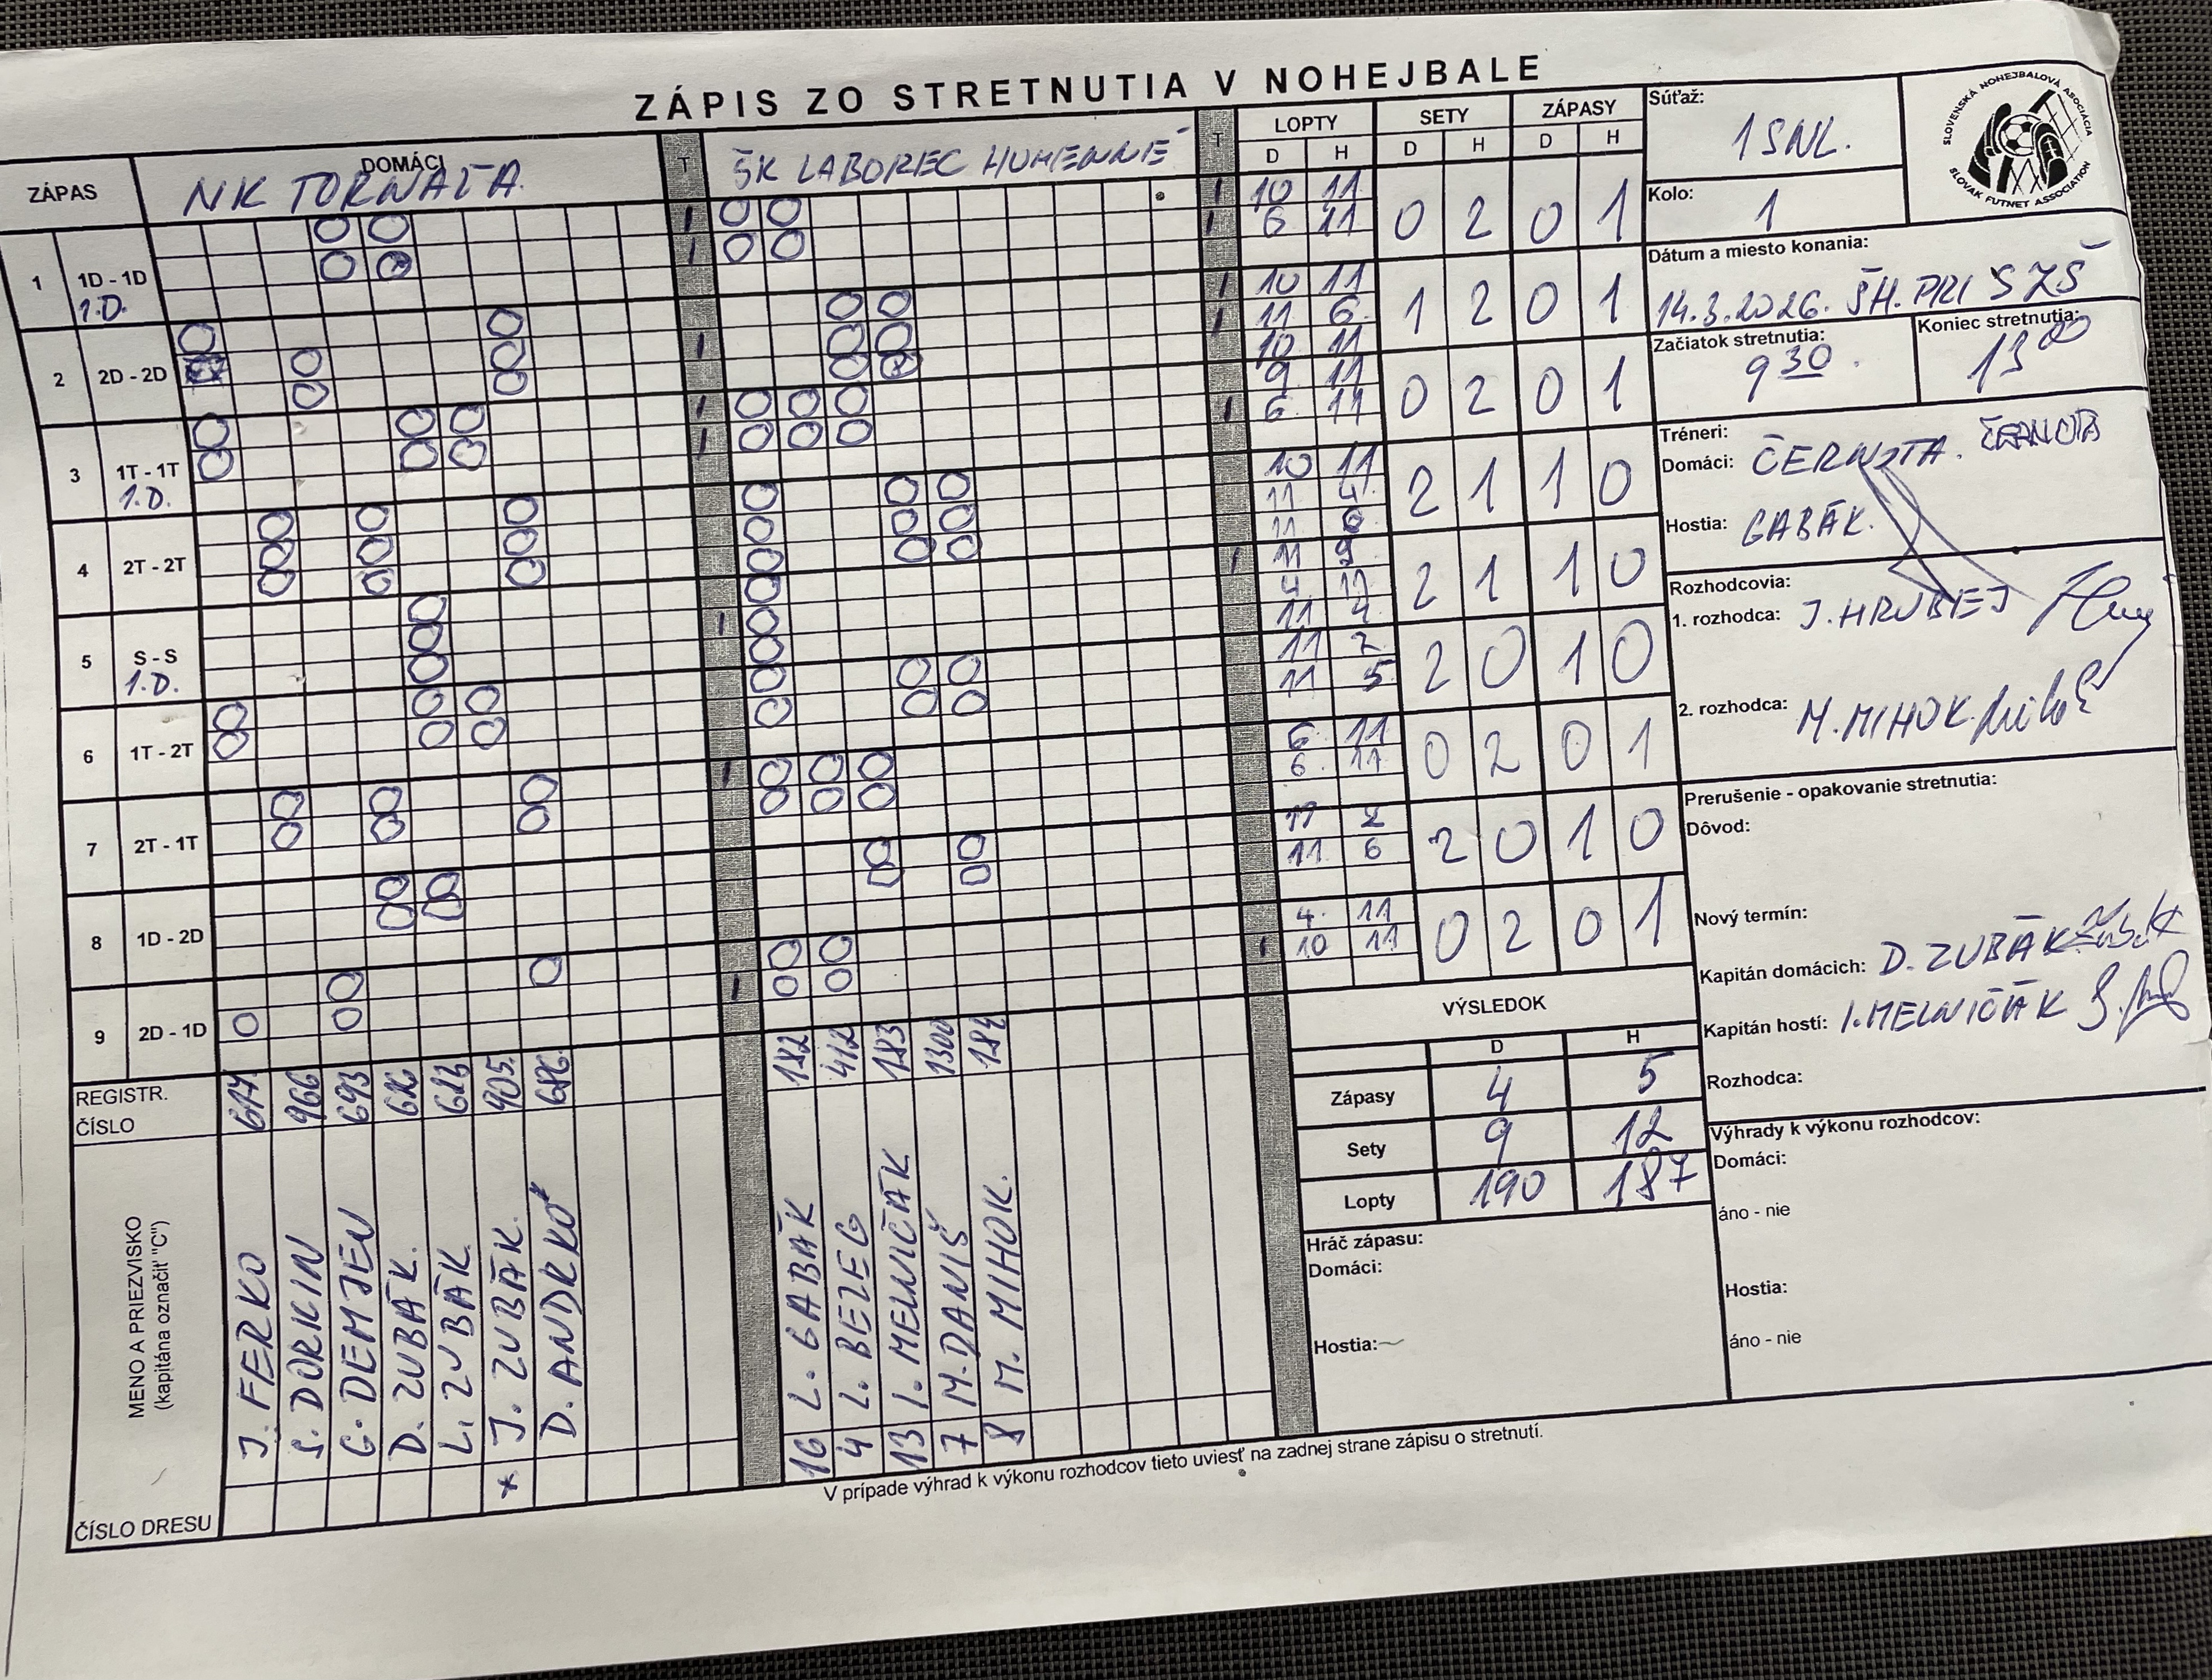 ZÁPIS ZO STRETNUTIA V NOHEJBALE
ZÁPAS
DOMÁCI
NK TORNAĽA
T
ŠK LABOREC HUMENNÉ
T
LOPTY SETY ZÁPASY
D H D H D H
Súťaž:
1 SNL.
SLOVENSKÁ NOHEJBALOVÁ ASOCIÁCIA
SLOVAK FUTNET ASSOCIATION
Kolo:
1
Dátum a miesto konania:
14.3.2026. ŠH. PRI SZŠ
Začiatok stretnutia:
9 30
Koniec stretnutia:
13 00
Tréneri:
Domáci: ČERNOTA.
Hostia: GABÁK.
Rozhodcovia:
1. rozhodca: J. HRUBEJ
2. rozhodca: M. MIHOK
Prerušenie - opakovanie stretnutia:
Dôvod:
Nový termín:
Kapitán domácich: D. ZUBÁK
Kapitán hostí: I. MELNIČÁK
Rozhodca:
Výhrady k výkonu rozhodcov:
Domáci:
áno - nie
Hostia:
áno - nie
1 1D - 1D
1.D.
10 11
6 11
0 2 0 1
2 2D - 2D
10 11
11 6
10 11
1 2 0 1
3 1T - 1T
1.D.
9 11
6 11
0 2 0 1
4 2T - 2T
10 11
11 4
11 6
2 1 1 0
5 S - S
1.D.
11 9
4 11
11 4
2 1 1 0
6 1T - 2T
11 2
11 5
2 0 1 0
7 2T - 1T
6 11
6 11
0 2 0 1
8 1D - 2D
11 2
11 6
2 0 1 0
9 2D - 1D
4 11
10 11
0 2 0 1
REGISTR.
ČÍSLO
966 693 905. 686
182 412 183 1300 184
MENO A PRIEZVISKO
(kapitána označiť "C")
J. FERKO
S. DORKIN
G. DEMJEN
D. ZUBÁK.
L. ZUBÁK.
* J. ZUBÁK.
D. ANDRKO
16 L. GABÁK
4 L. BEZEG
13 I. MELNIČÁK
7 M. DANIŠ
8 M. MIHOK.
ČÍSLO DRESU
VÝSLEDOK
D H
Zápasy 4 5
Sety 9 12
Lopty 190 187
Hráč zápasu:
Domáci:
Hostia:
V prípade výhrad k výkonu rozhodcov tieto uviesť na zadnej strane zápisu o stretnutí.